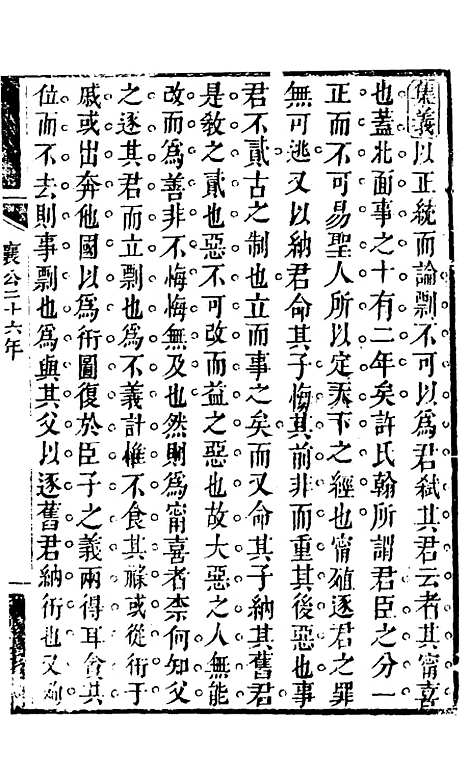 集義以正統而論剽不可以為君弑其君云者其甯喜
也蓋北面事之十有二年矣許氏翰所謂君臣之分一
正而不可易聖人所以定天下之經也甯殖逐君之罪
無可逃又以納君命其子悔其前非而重其後惡也事
君不貳古之制也立而事之矣而又命其子納其舊君
是教之貳也惡不可改而益之惡也故大惡之人無能
改而為善非不悔悔無及也然則為甯喜者柰何知父
之逐其君而立剽也為不義計惟不食其祿或從衎于
戚或出奔他國以為衎圖復於臣子之義兩得耳食其
位而不去則事剽也為與其父以逐舊君納衎也又
襄公二十六年